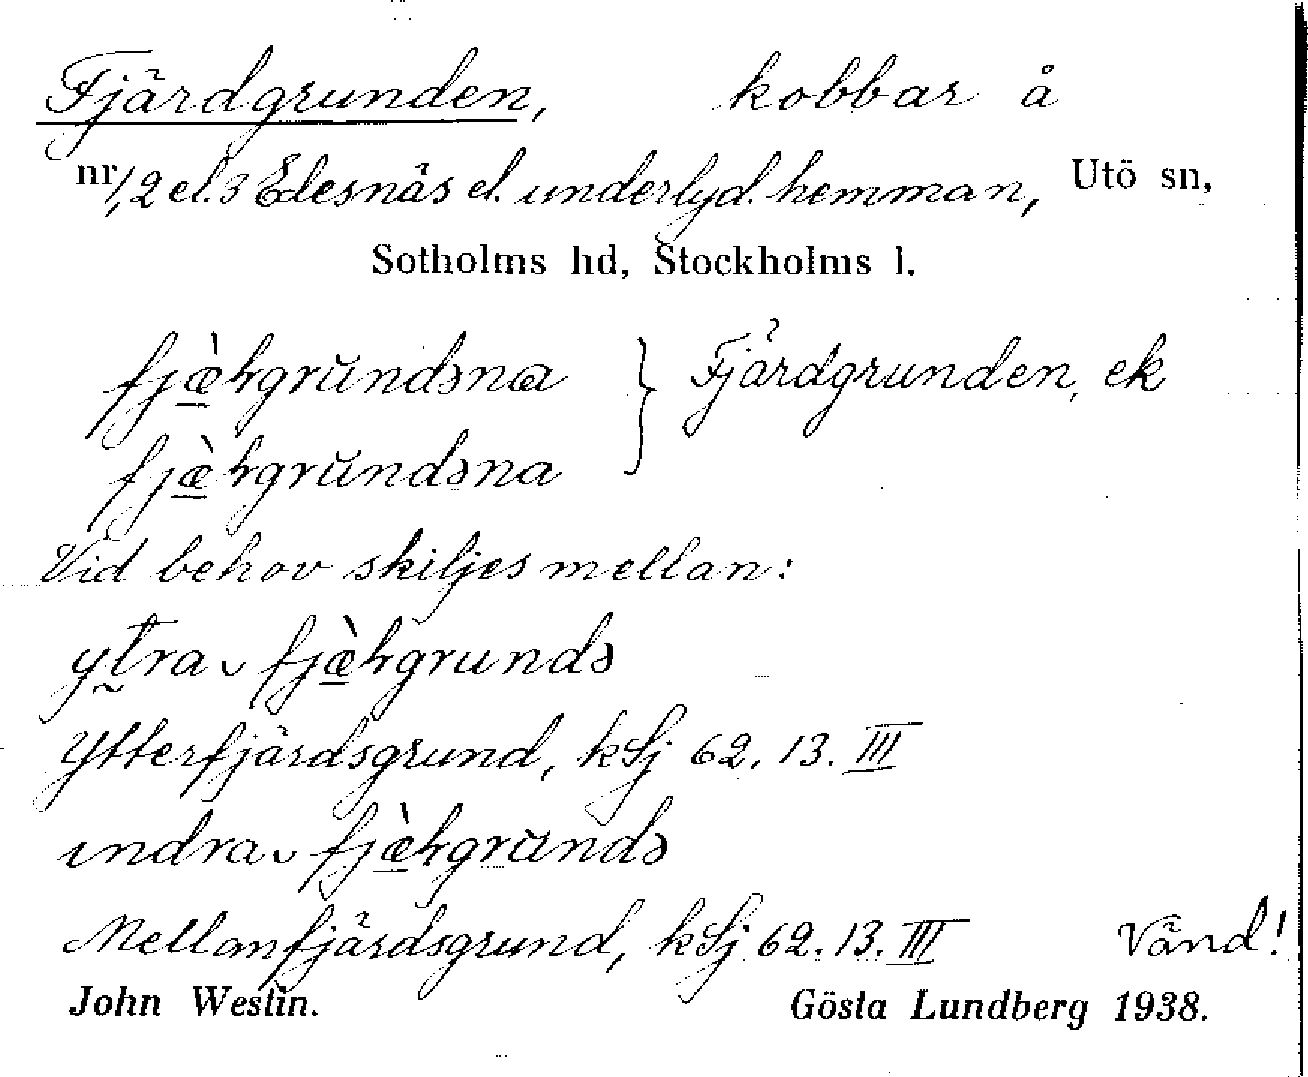 Fjärdgrunden, kobbar å
nr 1,2 el. 3 Edesnäs el. underlyd. hemman, Utö sn,
Sotholms hd, Stockholms l.
fjæ̀rgrŭndəna } Fjärdgrunden, ek
fjæ̀rgrŭndəna
Vid behov skiljes mellan:
ytra ᴗ fjæ̀rgrundə
Ytterfjärdsgrund, kSj 62. 13. III
ındra ᴗ fjæ̀rgrŭndə
Mellanfjärdsgrund, kSj 62. 13. III Vänd!
John Westin. Gösta Lundberg 1938.